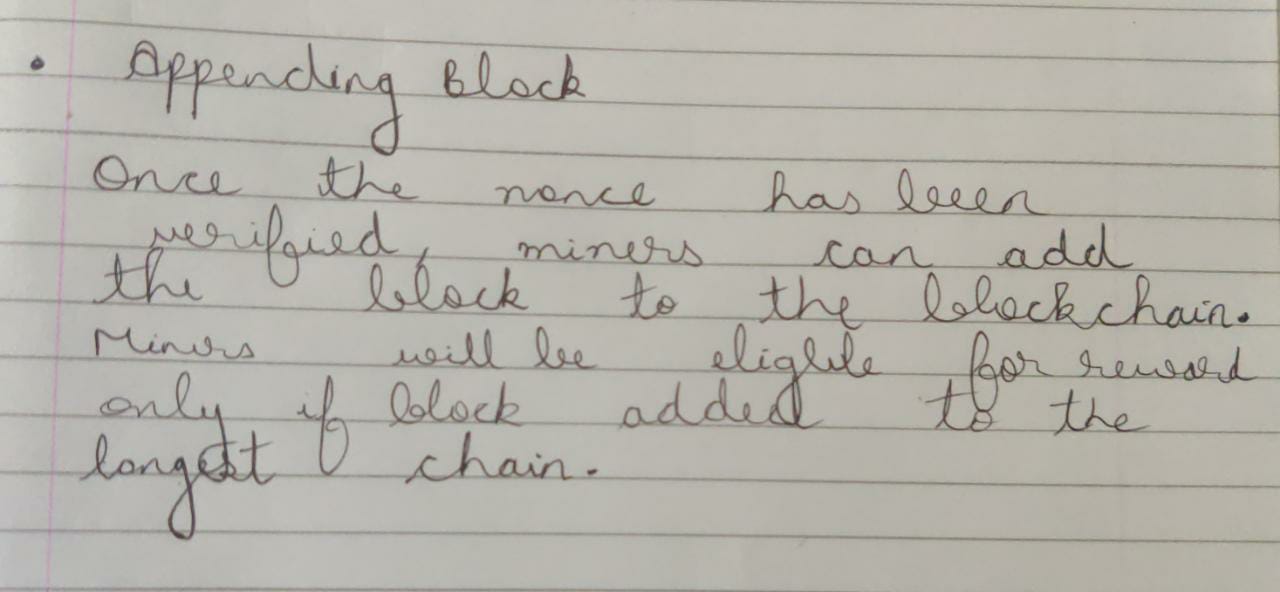 • Appending Block
Once the nonce has been
verified, miners can add
the block to the blockchain.
Miners will be eligible for reward
only if block added to the
longest chain.